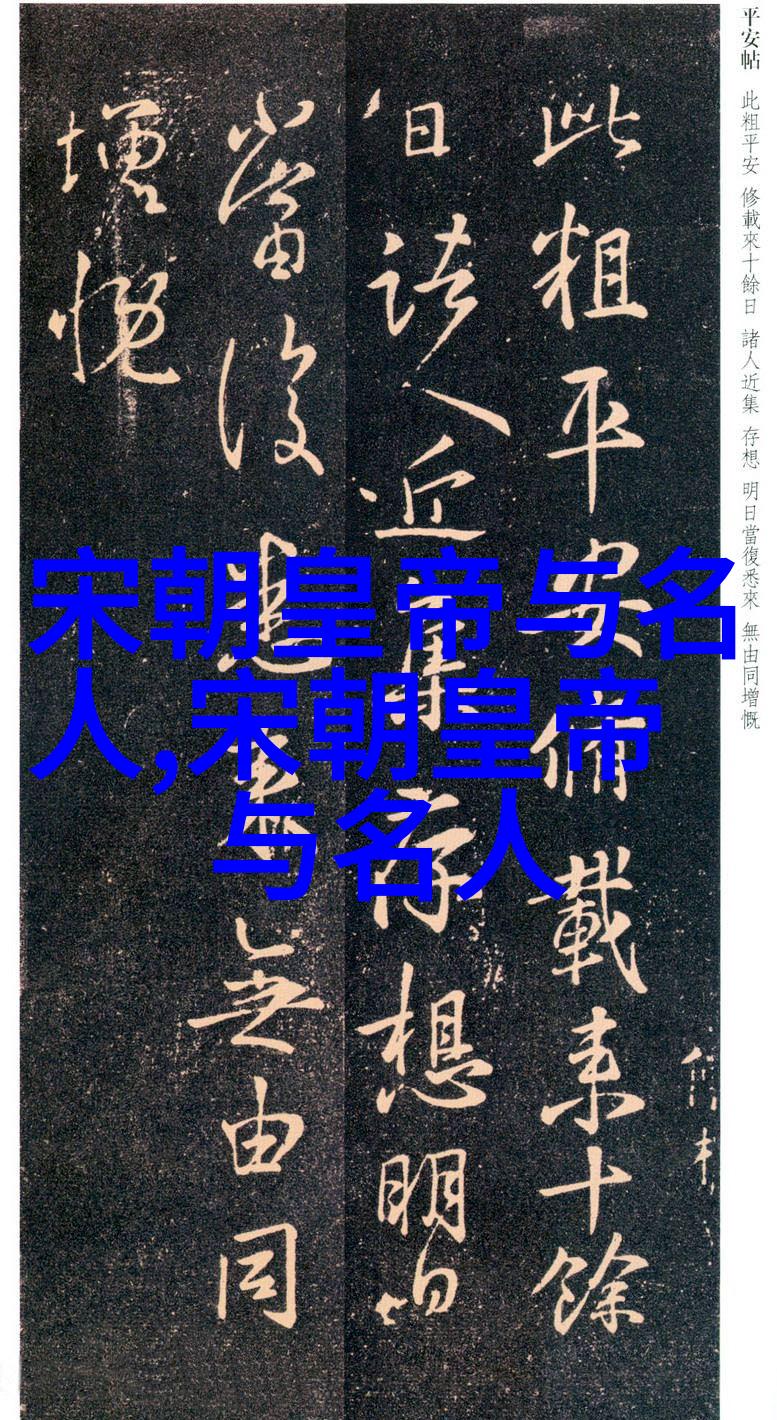 平安帖 此粗平安 修載來十餘日 諸人近集 存想 明日當復悉來 無由同增慨
此粗平安脩載来十餘
日諸人近集存想明日
當復悉来無由同
增慨
宋朝皇帝与名
人,宋朝皇帝
与名人